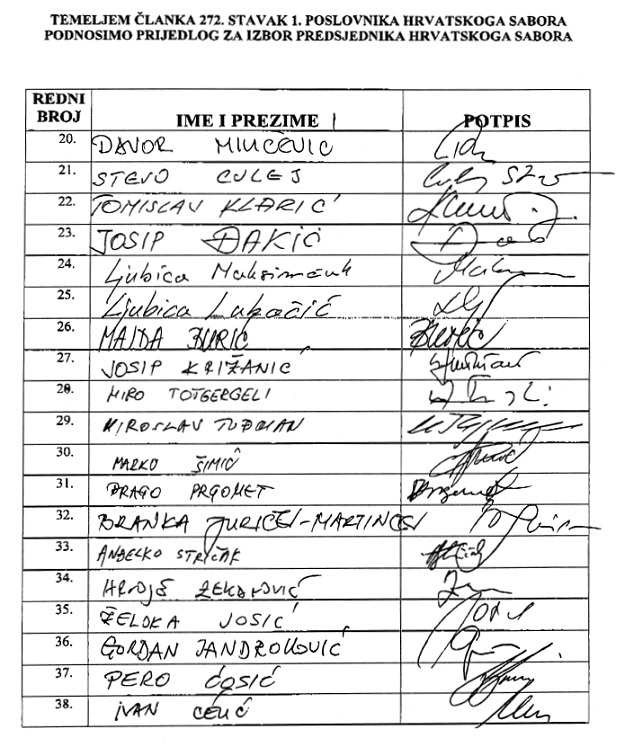 TEMELJEM ČLANKA 272. STAVAK 1. POSLOVNIKA HRVATSKOGA SABORA
PODNOSIMO PRIJEDLOG ZA IZBOR PREDSJEDNIKA HRVATSKOGA SABORA
REDNI BROJ IME I PREZIME POTPIS
20. DAVOR MILIČEVIĆ
21. STEVO CULEJ
22. TOMISLAV KLARIĆ
23. JOSIP ĐAKIĆ
24. Ljubica Maksimčuk
25. Ljubica Lukačić
26. MAJDA BURIĆ
27. JOSIP KRIŽANIĆ
28. MIRO TOTGERGELI
29. MIROSLAV TUĐMAN
30. MARKO ŠIMIĆ
31. DRAGO PRGOMET
32. BRANKA JURIČEV-MARTINČEV
33. ANĐELKO STRIČAK
34. HRVOJE ZEKANOVIĆ
35. ŽELJKA JOSIĆ
36. GORDAN JANDROKOVIĆ
37. PERO ĆOSIĆ
38. IVAN ĆELIĆ